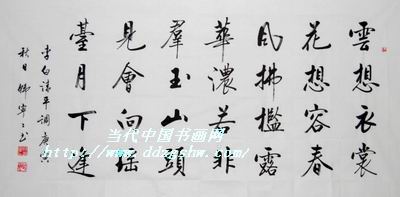 雲想衣裳
花想容春
風拂檻露
華濃若非
羣玉山頭
見會向瑶
臺月下逢
李白清平調庚寅
秋日
当代中国书画网
http://www.ddzgshw.com